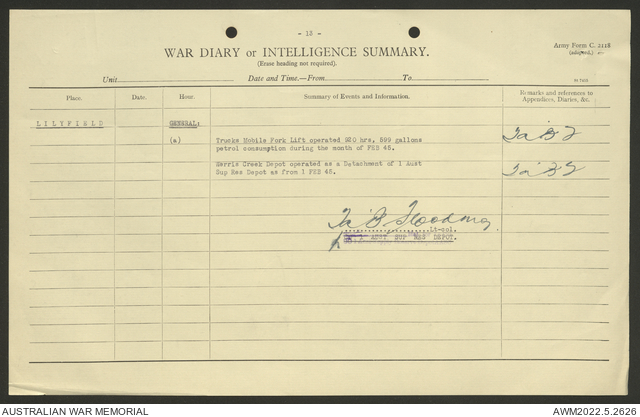 - 13 -
Army Form C. 2118
WAR DIARY or INTELLIGENCE SUMMARY.
(Erase heading not required).
Unit
Date and Time.—From
To
Place.
Date.
Hour.
Summary of Events and Information.
Remarks and references to
Appendices, Diaries, &c.
LILYFIELD
GENERAL:
(a)
Trucks Mobile Fork Lift operated 920 hrs, 899 gallons
petrol consumption during the month of FEB 45.
Werris Creek Depot operated as a Detachment of 1 Aust
Sup Res Depot as from 1 FEB 45.
Lt-col.
AUST SUP RES DEPOT.
AUSTRALIAN WAR MEMORIAL
AWM2022.5.2626